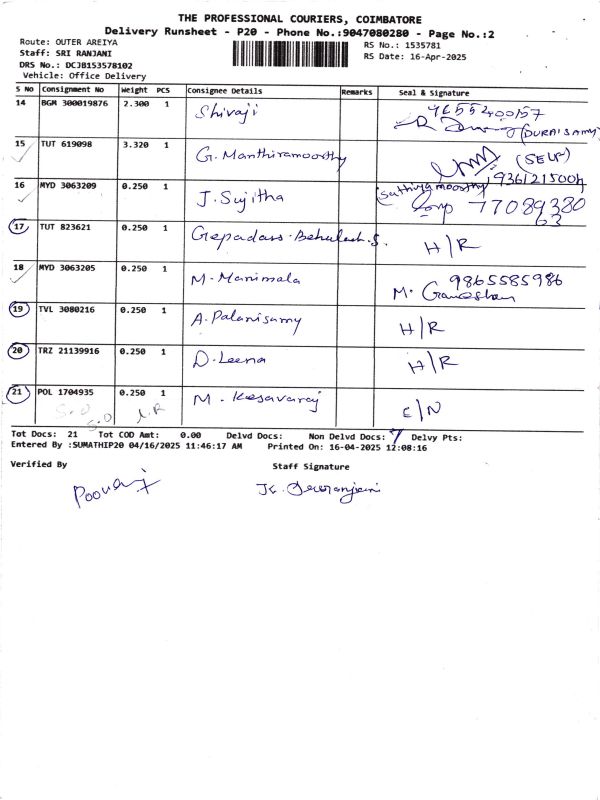 THE PROFESSIONAL COURIERS, COIMBATORE
Delivery Runsheet - P20 - Phone No.:9047080280 - Page No.:2
Route: OUTER AREIYA
Staff: SRI RANJANI
DRS No.: DCJB153578102
Vehicle: Office Delivery
RS No.: 1535781
RS Date: 16-Apr-2025
S No Consignment No Weight PCS Consignee Details Remarks Seal & Signature
14 BGM 300019876 2.300 1 Shivaji 9655400157
(DURAISAMY)
15 TUT 619098 3.320 1 G. Manthiramoorthy (SELF)
9361215004
16 MYD 3063209 0.250 1 J. Sujitha (Sathiyamoorthy)
7708938063
17 TUT 823621 0.250 1 H/R
18 MYD 3063205 0.250 1 M. Manimala 9865585986
M. Ganeshan
19 TVL 3080216 0.250 1 A. Palanisamy H/R
20 TRZ 21139916 0.250 1 D. Leena H/R
21 POL 1704935 0.250 1 M. Kesavaraj C/N
S.O S.O
Tot Docs: 21 Tot COD Amt: 0.00 Delvd Docs: Non Delvd Docs: 7 Delvy Pts:
Entered By :SUMATHIP20 04/16/2025 11:46:17 AM Printed On: 16-04-2025 12:08:16
Verified By Staff Signature